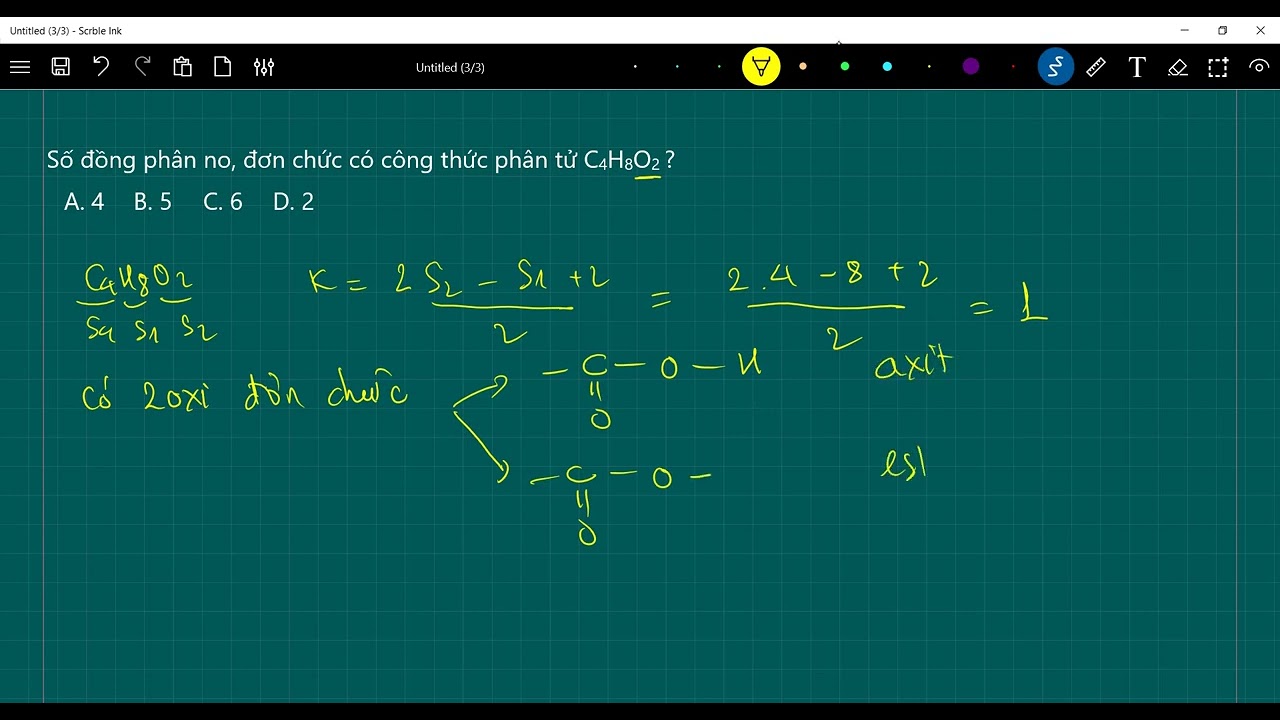 Untitled (3/3) - Scrble Ink
Untitled (3/3)
T
Số đồng phân no, đơn chức có công thức phân tử C₄H₈O₂ ?
A. 4 B. 5 C. 6 D. 2
C4H8O2
S4 S1 S2
K = 2S2 - S1 + 2 / 2 = 2.4 - 8 + 2 / 2 = 1
có 2 oxi đơn chức
- C - O - H axit
||
O
- C - O - est
||
O